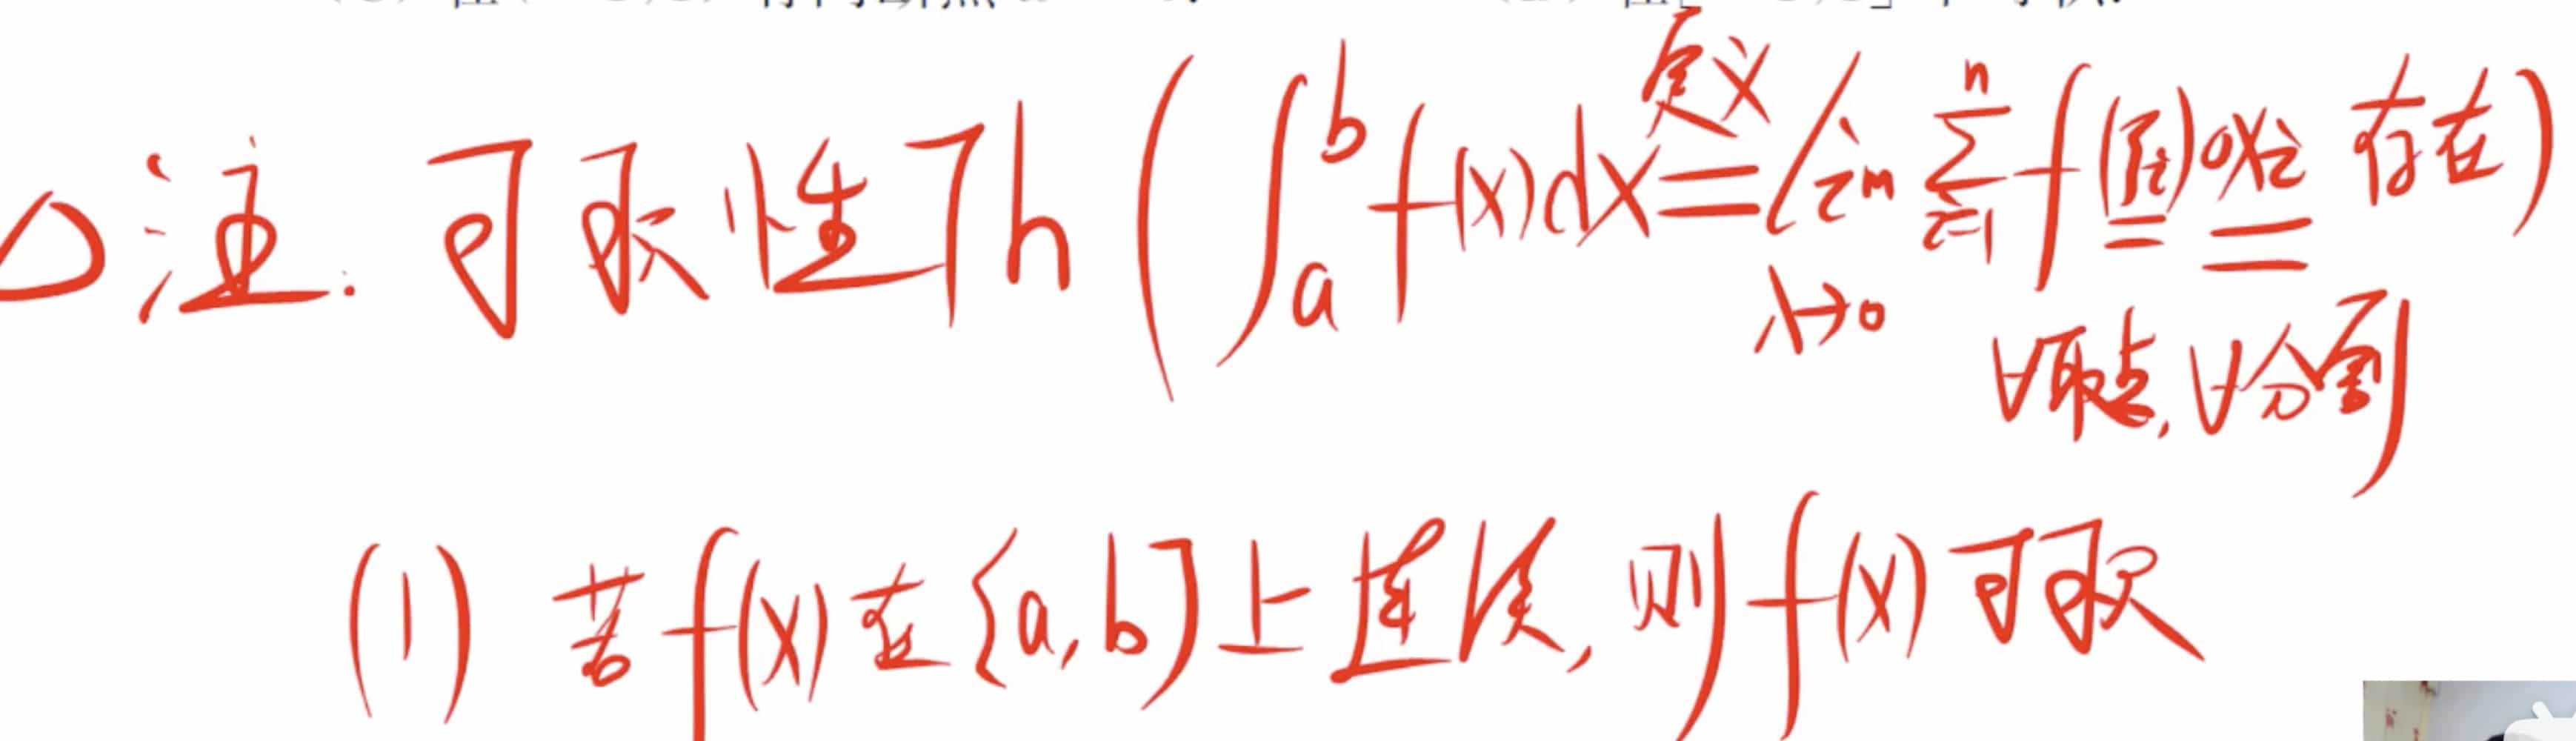 注. 可积性Th ( ∫_a^b f(x)dx ≝(定义) lim_{λ→0} ∑_{i=1}^n f(ξi)Δxi 存在)
∀取点, ∀分割
(1) 若f(x)在[a,b]上连续, 则f(x)可积